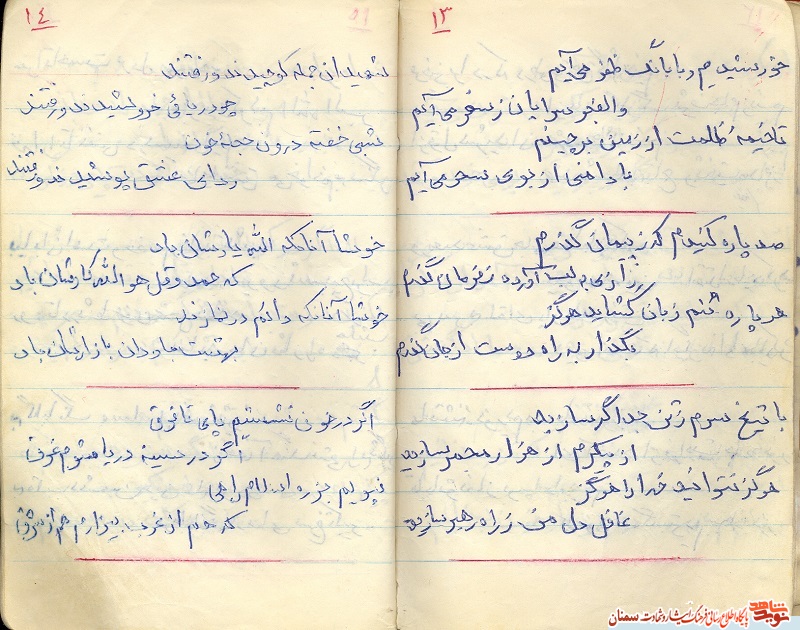 ۱۳
خورشیدم و با بانگ ظفر می‌آیم
والفجر سرایان ز سفر می‌آیم
تا خیمهٔ ظلمت از زمین برچینم
با دامنی از بوی سحر می‌آیم
صد پاره کنیدم که ز پیمان گذرم
رازی به لب آورده ز فرمان گذرم
هر پاره تنم زبان گشاید هرگز
بگذار به راه دوست از جان گذرم
با تیغ سرم ز تن جدا گر سازید
از پیکرم از هزار مجمر سازید
هرگز نتوانید خدا را هرگز
غافل دل من ز راه رهبر سازید
۱۴
شهیدان جمله کوچیدند و رفتند
چو دریائی خروشیدند و رفتند
شبی خفته درون حجلهٔ خون
ردای عشق پوشیدند و رفتند
خوشا آنانکه الله یارشان باد
که حمد و قل هو الله کارشان باد
خوشا آنانکه دائم در نمازند
بهشت جاودان بازارشان باد
اگر در خون نشستم پای تا فرق
اگر در سینه دریا شوم غرق
نپویم جز ره اسلام راهی
که هم از غرب بیزارم هم از شرق
نوید شاهد
پایگاه اطلاع رسانی فرهنگ ایثار و شهادت سمنان